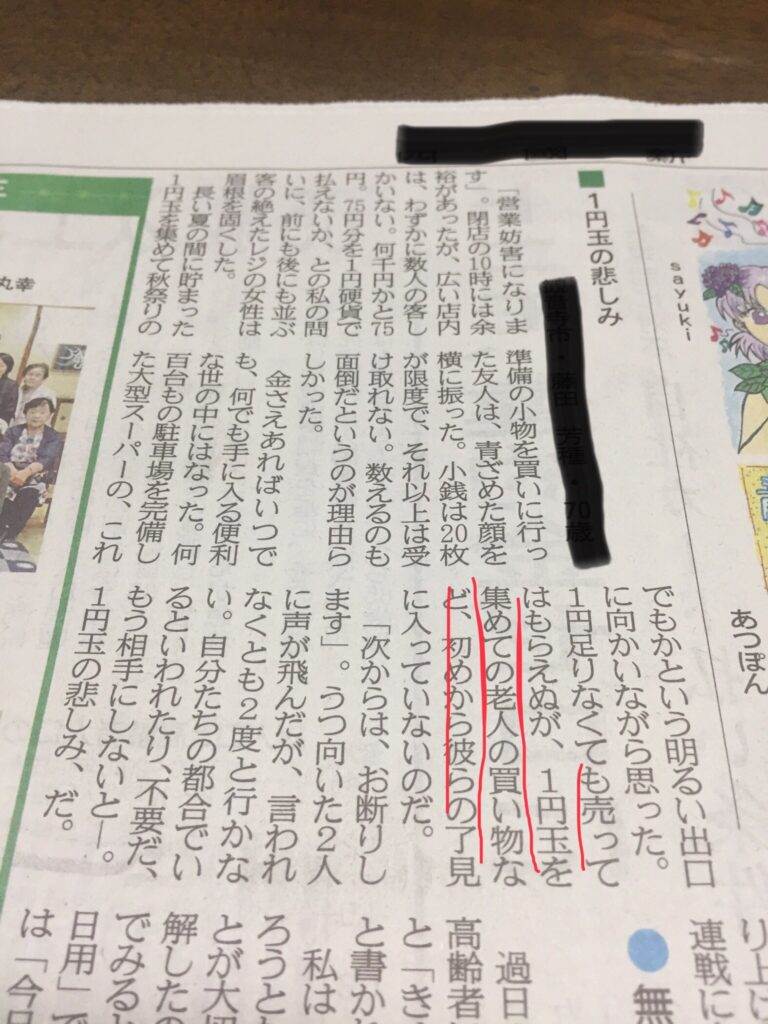 sayuki
あつぽん
り上げ
連戦に
無
■1円玉の悲しみ
「営業妨害になりま
す」。閉店の10時には余
裕があったが、広い店内
は、わずかに数人の客し
かいない。何千円かと75
円。75円分を1円硬貨で
払えないか、との私の問
いに、前にも後にも並ぶ
客の絶えたレジの女性は
眉根を固くした。
長い夏の間に貯まった
1円玉を集めて秋祭りの
準備の小物を買いに行っ
た友人は、青ざめた顔を
横に振った。小銭は20枚
が限度で、それ以上は受
け取れない。数えるのも
面倒だというのが理由ら
しかった。
金さえあればいつで
も、何でも手に入る便利
な世の中にはなった。何
百台もの駐車場を完備し
た大型スーパーの、これ
でもかという明るい出口
に向かいながら思った。
1円足りなくても売って
はもらえぬが、1円玉を
集めての老人の買い物な
ど、初めから彼らの了見
に入っていないのだ。
「次からは、お断りし
ます」。うつ向いた2人
に声が飛んだが、言われ
なくとも2度と行かな
い。自分たちの都合でい
るといわれたり、不要だ、
もう相手にしないと―。
1円玉の悲しみ、だ。
過日
高齢者
と「き
と書か
私は
ろうと
とが大
解した
でみると
日用」で
は「今日
丸幸